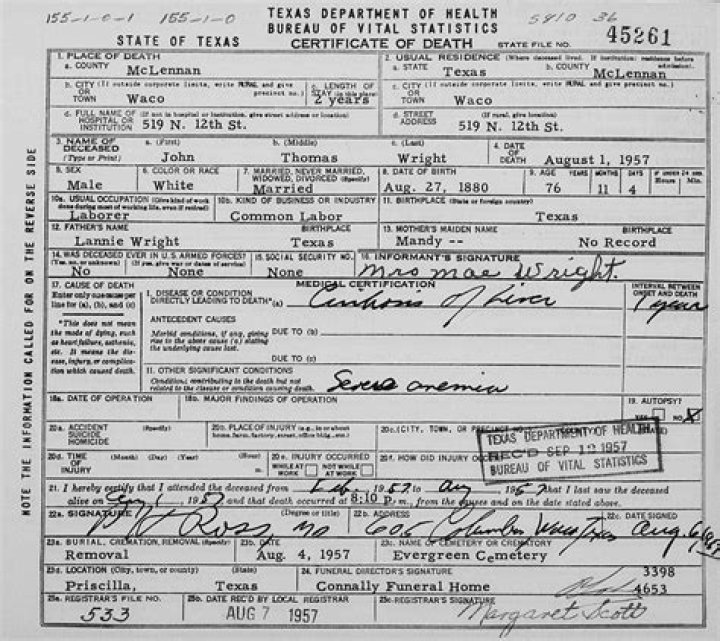 155-1-0-1 155-1-0 TEXAS DEPARTMENT OF HEALTH 5810 36
BUREAU OF VITAL STATISTICS
STATE OF TEXAS CERTIFICATE OF DEATH STATE FILE NO. 45261
NOTE THE INFORMATION CALLED FOR ON THE REVERSE SIDE
1. PLACE OF DEATH
a. COUNTY McLennan
2. USUAL RESIDENCE (Where deceased lived. If institution: residence before admission).
a. STATE Texas b. COUNTY McLennan
b. CITY (If outside corporate limits, write RURAL and give precinct no.)
OR TOWN Waco
c. LENGTH OF STAY (in this place) 2 years
c. CITY (If outside corporate limits, write RURAL and give precinct no.)
OR TOWN Waco
d. FULL NAME OF HOSPITAL OR INSTITUTION (If not in hospital or institution, give street address or location)
519 N. 12th St.
d. STREET ADDRESS (If rural, give location)
519 N. 12th St.
3. NAME OF DECEASED (Type or Print)
a. (First) b. (Middle) c. (Last)
John Thomas Wright
4. DATE OF DEATH August 1, 1957
5. SEX Male
6. COLOR OR RACE White
7. MARRIED, NEVER MARRIED, WIDOWED, DIVORCED (Specify) Married
8. DATE OF BIRTH Aug. 27, 1880
9. AGE YEARS MONTHS DAYS IF UNDER 24 HRS. Hours Min.
76 11 4
10a. USUAL OCCUPATION (Give kind of work done during most of working life, even if retired)
Laborer
10b. KIND OF BUSINESS OR INDUSTRY
Common Labor
11. BIRTHPLACE (State or foreign country)
Texas
12. FATHER'S NAME BIRTHPLACE
Lannie Wright Texas
13. MOTHER'S MAIDEN NAME BIRTHPLACE
Mandy -- No Record
14. WAS DECEASED EVER IN U.S. ARMED FORCES?
(Yes, no, or unknown) (If yes, give war or dates of service)
No None
15. SOCIAL SECURITY NO.
None
16. INFORMANT'S SIGNATURE
Mrs Mae Wright.
17. CAUSE OF DEATH
Enter only one cause per line for (a), (b), and (c)
*This does not mean the mode of dying, such as heart failure, asthenia, etc. It means the disease, injury, or complication which caused death.
MEDICAL CERTIFICATION
INTERVAL BETWEEN ONSET AND DEATH
I. DISEASE OR CONDITION DIRECTLY LEADING TO DEATH* (a) Cirrhosis of Liver 1 year
ANTECEDENT CAUSES
Morbid conditions, if any, giving rise to the above cause (a) stating the underlying cause last.
DUE TO (b)
DUE TO (c)
11. OTHER SIGNIFICANT CONDITIONS
Conditions contributing to the death but not related to the disease or condition causing death.
Severe anemia
18a. DATE OF OPERATION
18b. MAJOR FINDINGS OF OPERATION
19. AUTOPSY?
YES NO X
20a. ACCIDENT SUICIDE HOMICIDE (Specify)
20b. PLACE OF INJURY (e.g., in or about home, farm, factory, street, office bldg., etc.)
20c. (CITY, TOWN, OR PRECINCT NO.) (COUNTY) (STATE)
20d. TIME OF INJURY (Month) (Day) (Year) (Hour)
20e. INJURY OCCURRED
WHILE AT WORK NOT WHILE AT WORK
20f. HOW DID INJURY OCCUR?
TEXAS DEPARTMENT OF HEALTH
REC'D SEP 12 1957
BUREAU OF VITAL STATISTICS
21. I hereby certify that I attended the deceased from Feb. 1957, to Aug 1957 that I last saw the deceased
alive on Aug 1 1957 and that death occurred at 8:10 P.m., from the causes and on the date stated above.
22a. SIGNATURE (Degree or title)
Ross MD
22b. ADDRESS
605 Columbus Waco Texas
22c. DATE SIGNED
Aug. 6, 1957
23a. BURIAL, CREMATION, REMOVAL (Specify)
Removal
23b. DATE
Aug. 4, 1957
23c. NAME OF CEMETERY OR CREMATORY
Evergreen Cemetery
23d. LOCATION (City, town, or county) (State)
Priscilla, Texas
24. FUNERAL DIRECTOR'S SIGNATURE 3398
Connally Funeral Home 4653
25a. REGISTRAR'S FILE NO.
533
25b. DATE REC'D BY LOCAL REGISTRAR
AUG 7 1957
25c. REGISTRAR'S SIGNATURE
Margaret Scott